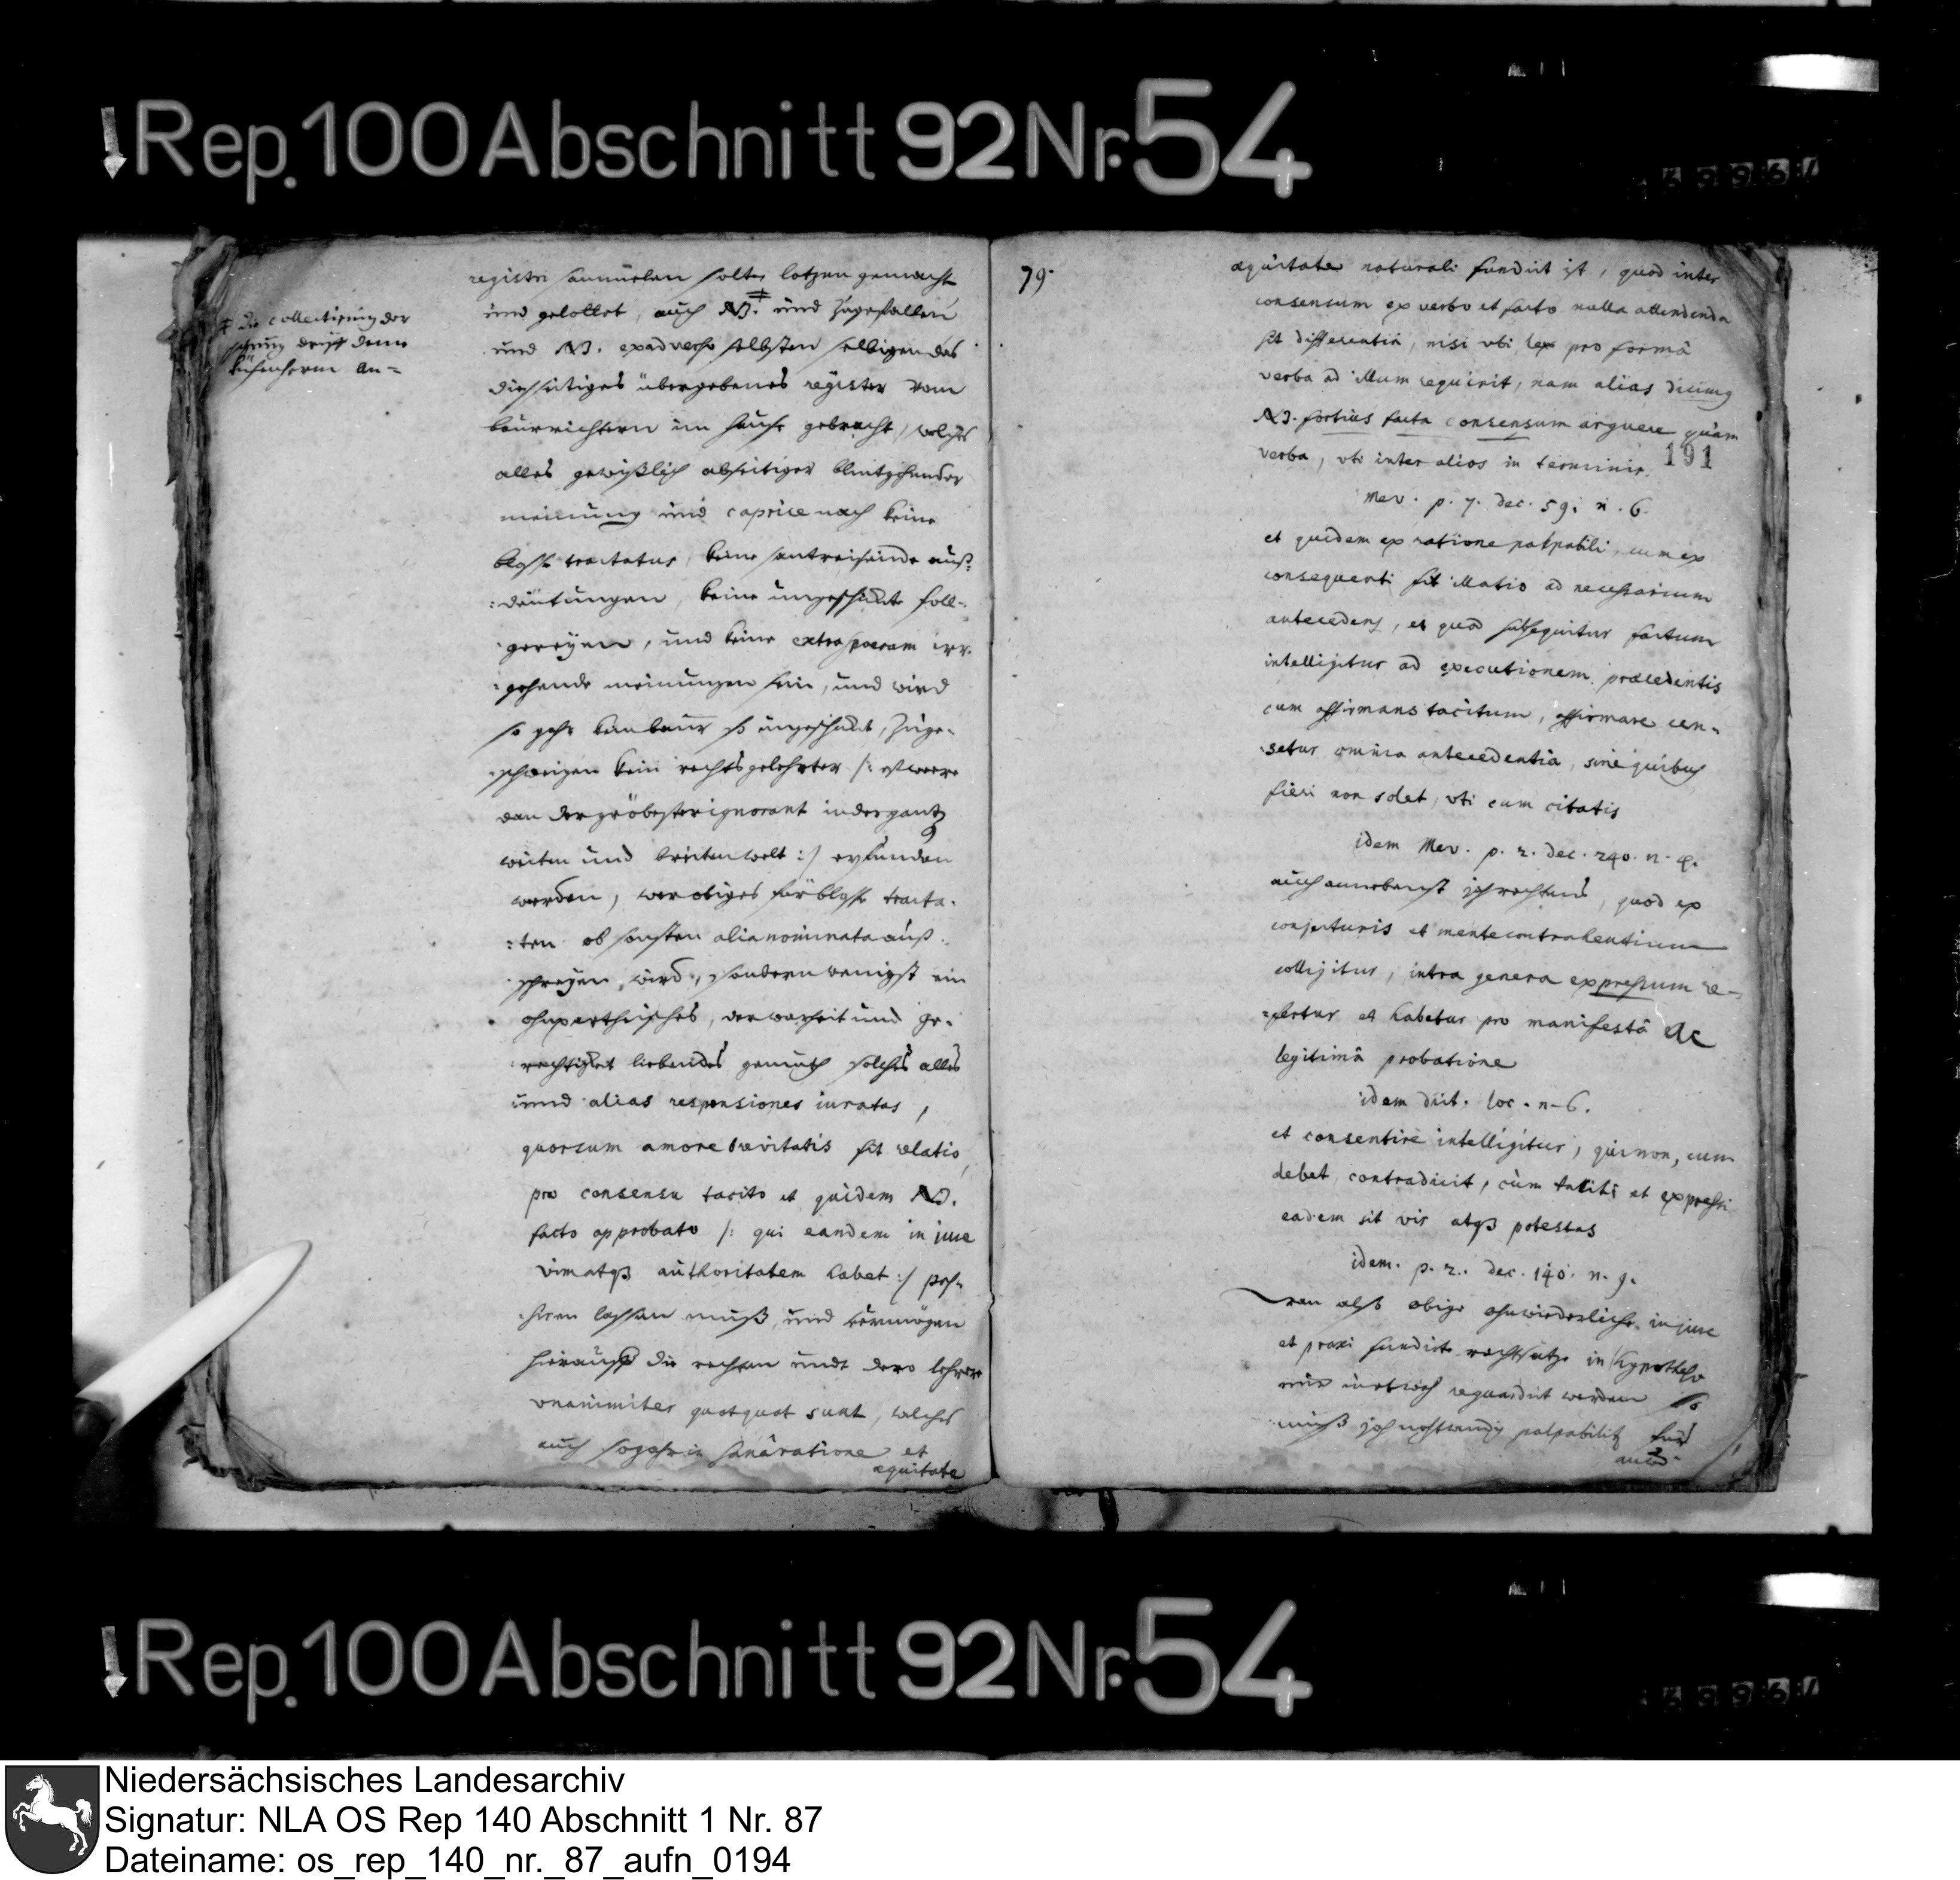 Rep. 100 Abschnitt 92 Nr. 54
registri sammelen solte, lotzen gemacht
und gelottet, auch NB. ‡ und zugefallen
und NB. ex adverso selbsten selbigen das
diesseitiges übergebenes register vom
baurrichtern im hause gebracht, welches
alles gewißlich abseitiger
meinung und caprice nach keine
blosse tractatus, keine auß-
:deutungen, keine ungeschickte foll-
:gereyen, und keine extra sphaeram irr-
:gehende meinungen sein, und wird
so gahr kein baur so ungeschickt, zuge-
:schweigen kein rechtsgelehrter /: es were
dan der gröbester ignorant in der gantz
weiten und breiten welt :/ erfunden
werden, wer obiges für blosse tracta-
:ten ob sonsten alia nominata auß-
:schreyen wird, sondern wenigst ein
ohnpartheisches, der warheit und ge-
:rechtigkeit liebendes gemüth solches alles
unnd alias responsiones iuratas,
quorsum amore brevitatis fit relatio,
pro consensu tacito et quidem NB.
facto approbato /: qui eandem in jure
vim atqz authoritatem habet :/ pas-
:siren lassen muß, und vermögen
hierauß die rechten undt dero lehrer
unanimiter quotquot sunt, welches
auch sogahr in sanâ ratione et
æquitate
‡ die collectirung der
denn
an=
79.
æquitate naturali fundirt ist, quod inter
consensum ex verbo et facto nulla attendenda
sit differentia, nisi ubi lex pro formâ
verba ad illum requirit, nam alias dicimus
NB. fortius facta consensum arguere quam
verba, uti inter alios in terminis.
191
Mev. p. 7. dec. 59. n. 6.
et quidem ex ratione palpabili, cum ex
consequenti fit illatio ad necessarium
antecedens, et quod subsequitur factum
intelligitur ad executionem præcedentis
cum affirmans tacitum, affirmare cen-
:setur omnia antecedentia, sine quibus
fieri non solet, uti cum citatis
idem Mev. p. 2. dec. 240. n. 4.
auch annebenst ist rechtens, quod ex
conjecturis et mente contrahentium
colligitur, intra genera expressum re-
:fertur et habetur pro manifestâ ac
legitimâ probatione
idem dict. loc. n. 6.
et consentire intelligitur, qui non, cum
debet, contradicit, cùm taciti et expressi
eadem sit vis atqz potestas
idem. p. 2. dec. 140. n. 9.
wan alß obige ohnwiderlegliche in jure
et praxi fundirte rechtsätze in hypothesi
nur in etwas reguardirt werden so
muß ich nothwendig palpabiliter
Rep. 100 Abschnitt 92 Nr. 54
Niedersächsisches Landesarchiv
Signatur: NLA OS Rep 140 Abschnitt 1 Nr. 87
Dateiname: os_rep_140_nr._87_aufn_0194